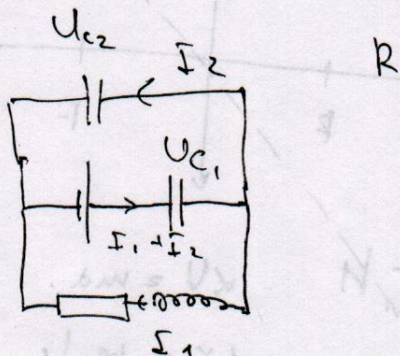 Uc2
I2
R
UC1
I1 + I2
I1